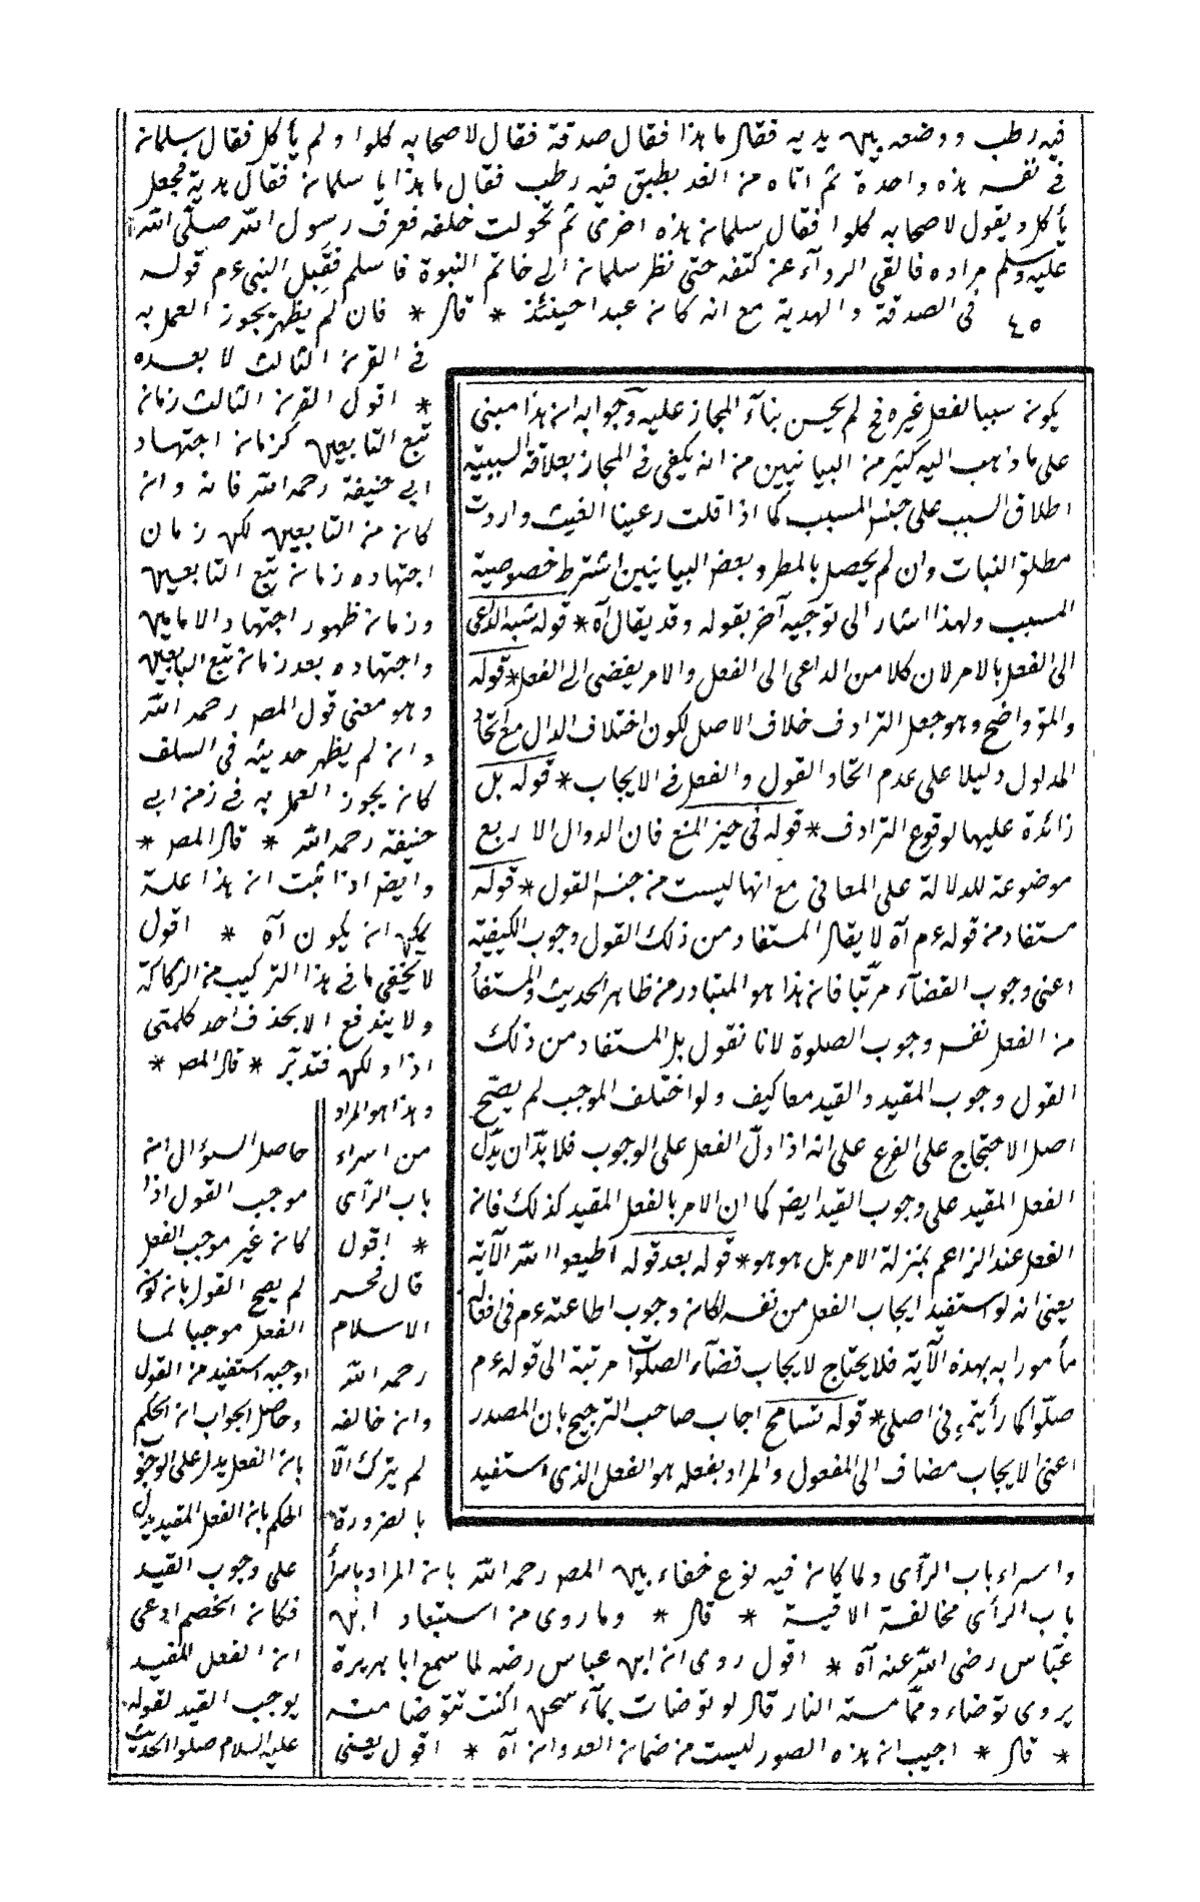 فيه رطب ووضعه بين يديه فقال ما هذا فقال صدقة فقال لاصحابه كلوا ولم يأكل فقال سلمان
في نفسه هذه واحدة ثم اتاه من الغد بطبق فيه رطب فقال ما هذا يا سلمان فقال هدية فجعل
يأكل ويقول لاصحابه كلوا فقال سلمان هذه اخرى ثم تحولت خلفه فعرف رسول الله صلّى الله
عليه وسلم مراده فالقى الردآء عن كتفه حتى نظر سلمان الى خاتم النبوة فاسلم فقبل النبى ءم قوله
٤٥ فى الصدقة والهدية مع انه كان عبدا حينئذ * قال * فان لم يظهر يجوز العمل به
فى القرن الثالث لا بعده
* اقول القرن الثالث زمان
تبع التابعين كزمان اجتهاد
ابى حنيفة رحمه الله فانه وان
كان من التابعين لكن زمان
اجتهاده زمان تبع التابعين
وزمان ظهور اجتهاد الامامين
واجتهاده بعد زمان تبع التابعين
وهو معنى قول المص رحمه الله
وان لم يظهر حديثه فى السلف
كان يجوز العمل به فى زمن ابى
حنيفة رحمه الله * قال المص *
وايضا اذا ثبت ان هذا علة
يمكن ان يكون آه * اقول
لا يخفى ما فى هذا التركيب من الركاكة
ولا يندفع الا بحذف احد كلمتى
اذا ولكن فتدبّر * قال المص *
وهذا هو المراد
من اسراء
باب الرأى
* اقول
قال فخر
الاسلام
رحمه الله
وان خالفه
لم يترك الّا
بالضرورة
واسراء باب الرأى ولما كان فيه نوع خفاء بين المص رحمه الله بان المراد باسرأ
باب الرأى مخالفة الاقيسة * قال * وما روى من استبعاد ابن
عبّاس رضى الله عنه آه * اقول روى ان ابن عباس رضه لما سمع ابا هريرة
يروى توضاء وممّا مسته النار قال لو توضات بمآء سخن اكنت تتوضا منه
* قال * اجيب ان هذه الصور ليست من ضمان العدوان آه * اقول يعنى
يكون سببا لفعل غيره فح لم يحسن بنآء المجاز عليه وجوابه ان هذا مبنى
على ما ذهب اليه كثير من البيانيين من انه يكفى فى المجاز بعلاقة السببية
اطلاق السبب على جنس المسبب كما اذا قلت رعينا الغيث واردت
مطلق النبات وان لم يحصل بالمطر وبعض البيانيين اشترط خصوصية
المسبب ولهذا اشار الى توجيه آخر بقوله وقد يقال آه * قوله شبه الداعى
الى الفعل بالامر لان كلا من الداعى الى الفعل والامر يفضى الى الفعل * قوله
والمق واضح وهو جعل الترادف خلاف الاصل لكون اختلاف الدال مع اتحاد
المدلول دليلا على عدم اتحاد القول والفعل فى الايجاب * قوله بل
زائدة عليها لوقوع الترادف * قوله فى حيز المنع فان الدوال الاربع
موضوعة للدلالة على المعانى مع انها ليست من جنس القول * قوله
مستفاد من قوله ءم آه لا يقال المستفاد من ذلك القول وجوب الكيفية
اعنى وجوب القضآء مرتّبا فان هذا هو المتبادر من ظاهر الحديث والمستفاد
من الفعل نفس وجوب الصلوة لانا نقول بل المستفاد من ذلك
القول وجوب المقيد والقيد معا كيف ولو اختلف الموجب لم يصحّ
اصل الاحتجاج على الفرع على انه اذا دلّ الفعل على الوجوب فلا بدّ ان يدّل
الفعل المقيد على وجوب القيد ايض كما ان الامر بالفعل المقيد كذلك فان
الفعل عند الزاعم بمنزلة الامر بل هو هو * قوله بعد قوله اطيعوا الله الآية
يعنى انه لو استفيد ايجاب الفعل من نفسه لكان وجوب اطاعته ءم فى افعاله
مأمورا به بهذه الآية فلا يحتاج لايجاب قضآء الصلوات مرتبة الى قوله ءم
صلّوا كما رأيتم فى اصلى * قوله تسامح اجاب صاحب الترجيح بان المصدر
اعنى الايجاب مضاف الى المفعول والمراد بفعله هو الفعل الذى استفيد
حاصل السؤال انه
موجب القول اذا
كان غير موجب الفعل
لم يصح القول بان كون
الفعل موجبا لما
اوجبه استفيد من القول
وحاصل الجواب ان الحكم
بان الفعل يدل على الوجو
الحكم بان الفعل المقيد يدل
على وجوب القيد
فكان الخصم ادعى
ان الفعل المقيد
يوجب القيد لقوله
عليه السلام صلوا الحديث